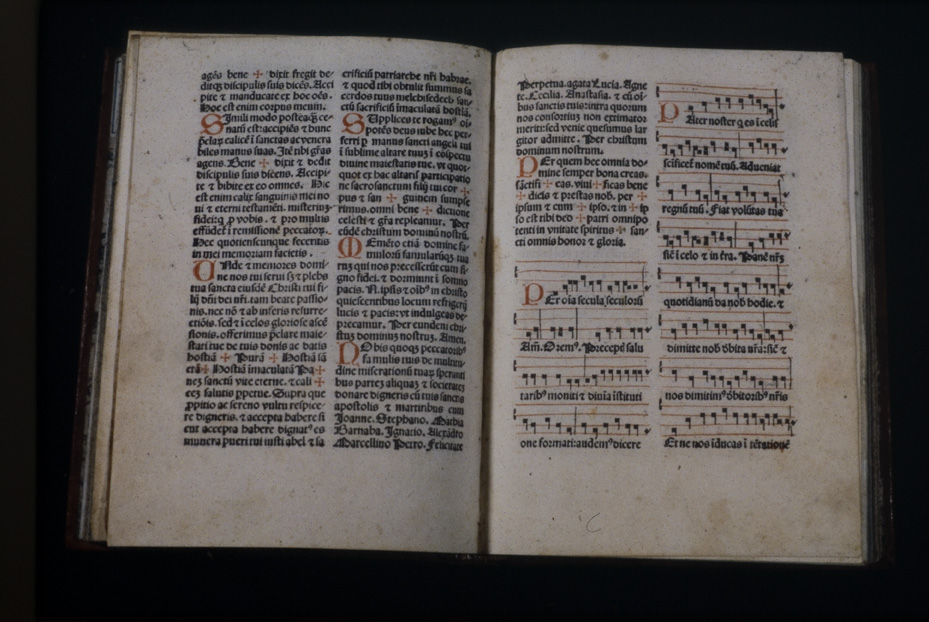 agēs bene ✢ dixit fregit de-
ditq; discipulis suis dicēs. Acci
pite ⁊ manducate ex hoc oēs.
Hoc est enim corpus meum.
Simili modo posteaq̃ ce-
natū est: accipiēs ⁊ hunc
p̄clarū calicē ī sanctas ac venera
biles manus suas. Itē tibi gr̄as
agens. Bene ✢ dixit ⁊ dedit
discipulis suis dicens. Accipi-
te ⁊ bibite ex eo omnes. Hic
est enim calix sanguinis mei no
ui ⁊ eterni testamēti. misteriuȝ
fidei: q̄ p̱ vobis. ⁊ pro multis
effūdet̄ ī remissionē peccatoꝝ.
Hec quotienscunque feceritis
in mei memoriam facietis.
Unde ⁊ memores domi-
ne nos tui serui sȝ ⁊ plebs
tua sancta eiusdē Christi tui fi-
lij dn̄i dei nr̄i. tam beate passio-
nis. nec nō ⁊ ab inferis resurre-
ctiōis. sed ⁊ ī celos gloriose ascē
sionis. offerimus p̄clare maie-
stati tue de tuis donis ac datis
hostiā ✢ Purā ✢ Hostiā sā
ctā ✢ Hostiā imaculatā Pa ✢
neȝ sanctū vite eterne. ⁊ cali ✢
ceȝ salutis pp̱etue. Supra que
p̱pitio ac sereno vultu respice-
re digneris. ⁊ accepta habere si
cut accepta habere dignat⁹ es
munera pueri tui iusti abel ⁊ sa
crificiū patriarche nr̄i habrae.
⁊ quod tibi obtulit summus sa
cerdos tuus melchisedech san-
ctū sacrificiū imaculatā hostiā.
Supplices te rogam⁹ oī-
potēs deus iube hec per-
ferri p̱ manus sancti angeli tui
ī sublime altare tuuȝ ī cōspectu
diuine maiestatis tue. vt quot-
quot ex hac altaris participatio
ne sacrosanctum filij tui cor ✢
pus ⁊ san ✢ guinem sumpse
rimus. omni bene ✢ dictione
celesti ⁊ gr̄a repleamur. Per
eūdē christum dominū nostrū.
Memēto etiā domine fa-
mulorū famularūqȝ tua
ruȝ qui nos precesserūt cum si-
gno fidei. ⁊ dormiunt ī somno
pacis. N. ipsis ⁊ oīb⁹ in christo
quiescentibus locum refrigerij
lucis ⁊ pacis: vt indulgeas de-
precamur. Per eundem chri-
stum dominuȝ nostruȝ. Amen.
Nobis quoqȝ peccatorib⁹
famulis tuis de multitu-
dine miserationū tuaꝝ sperantib⁹
parteȝ aliquaȝ ⁊ societateȝ
donare digneris cū tuis sanctis
apostolis ⁊ martiribus cum
Joanne. Stephano. Mathia
Barnaba. Ignatio. Alexādro
Marcellino Petro. Felicitate
Perpetua. agata Lucia. Agne
te. Cecilia. Anastasia. ⁊ cū oī-
bus sanctis tuis: intra quorum
nos consortiuȝ non extimatos
meriti: sed venie quesumus lar
gitor admitte. Per christum
dominum nostrum.
Per quem hec omnia do-
mine semper bona creas.
sāctifi ✢ cas. viui ✢ ficas bene
✢ dicis ⁊ prestas nob. per ✢
ipsum ⁊ cum ✢ ipso. ⁊ in ✢ ip
so est tibi deo ✢ patri omnipo
tenti in vnitate spiritus ✢ san-
cti omnis honor ⁊ gloria.
Per oīa secula seculorū
Am̄. Orem⁹. Preceptī salu
tarib⁹ moniti ⁊ diuīa īstituti
one formati: audem⁹ dicere
Pater noster q̄ es ī celis
scificet̄ nomē tuū. Adueniat
regnū tuū. Fiat volūtas tua
sic̄ ī celo ⁊ in t̄ra. Panē nr̄ȝ
quotidianū da nob hodie. ⁊
dimitte nob d̄bita nr̄a: sic̄ ⁊
nos dimitim⁹ d̄bitorib⁹ nr̄is
Et ne nos īducas ī tētationē